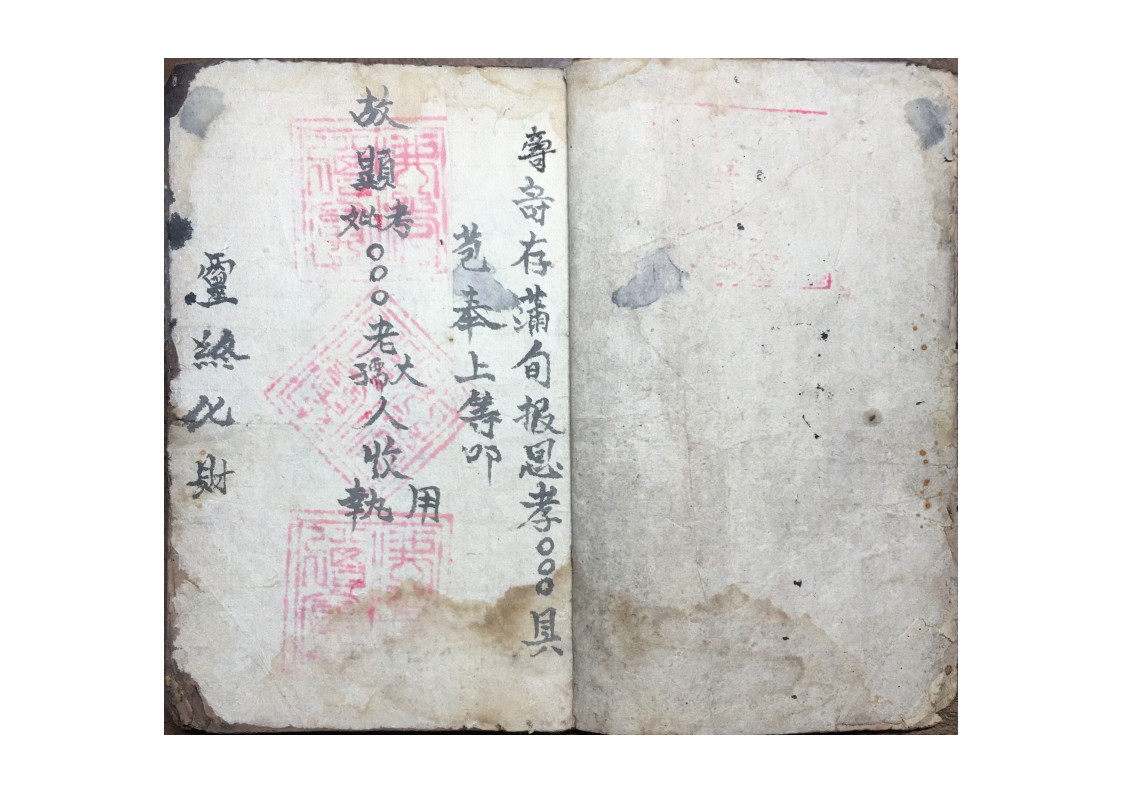 寄存蒲旬报恩孝〇〇〇具
苞奉上等叩
故顯考妣〇〇〇老大孺人收執用
靈終化財